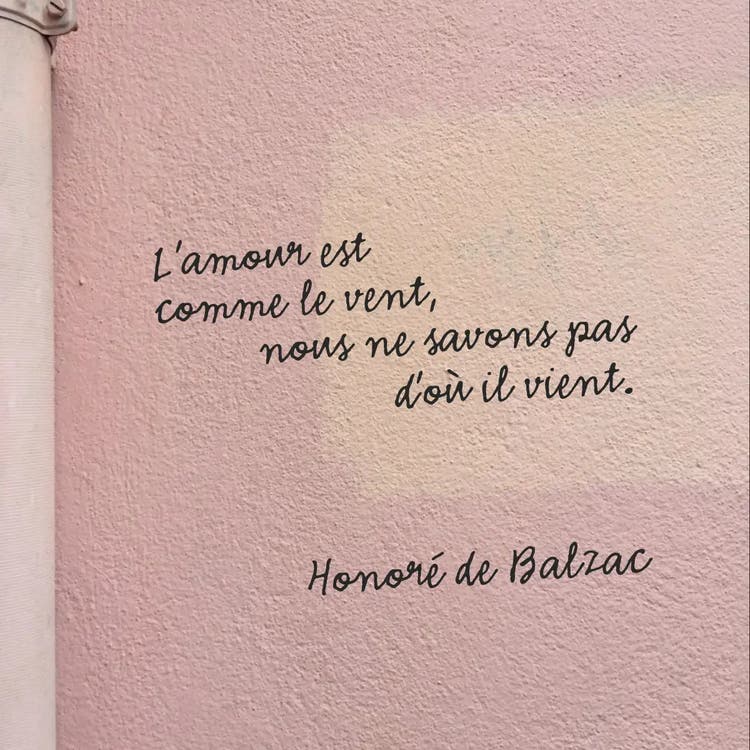 L'amour est
comme le vent,
nous ne savons pas
d'où il vient.
Honoré de Balzac